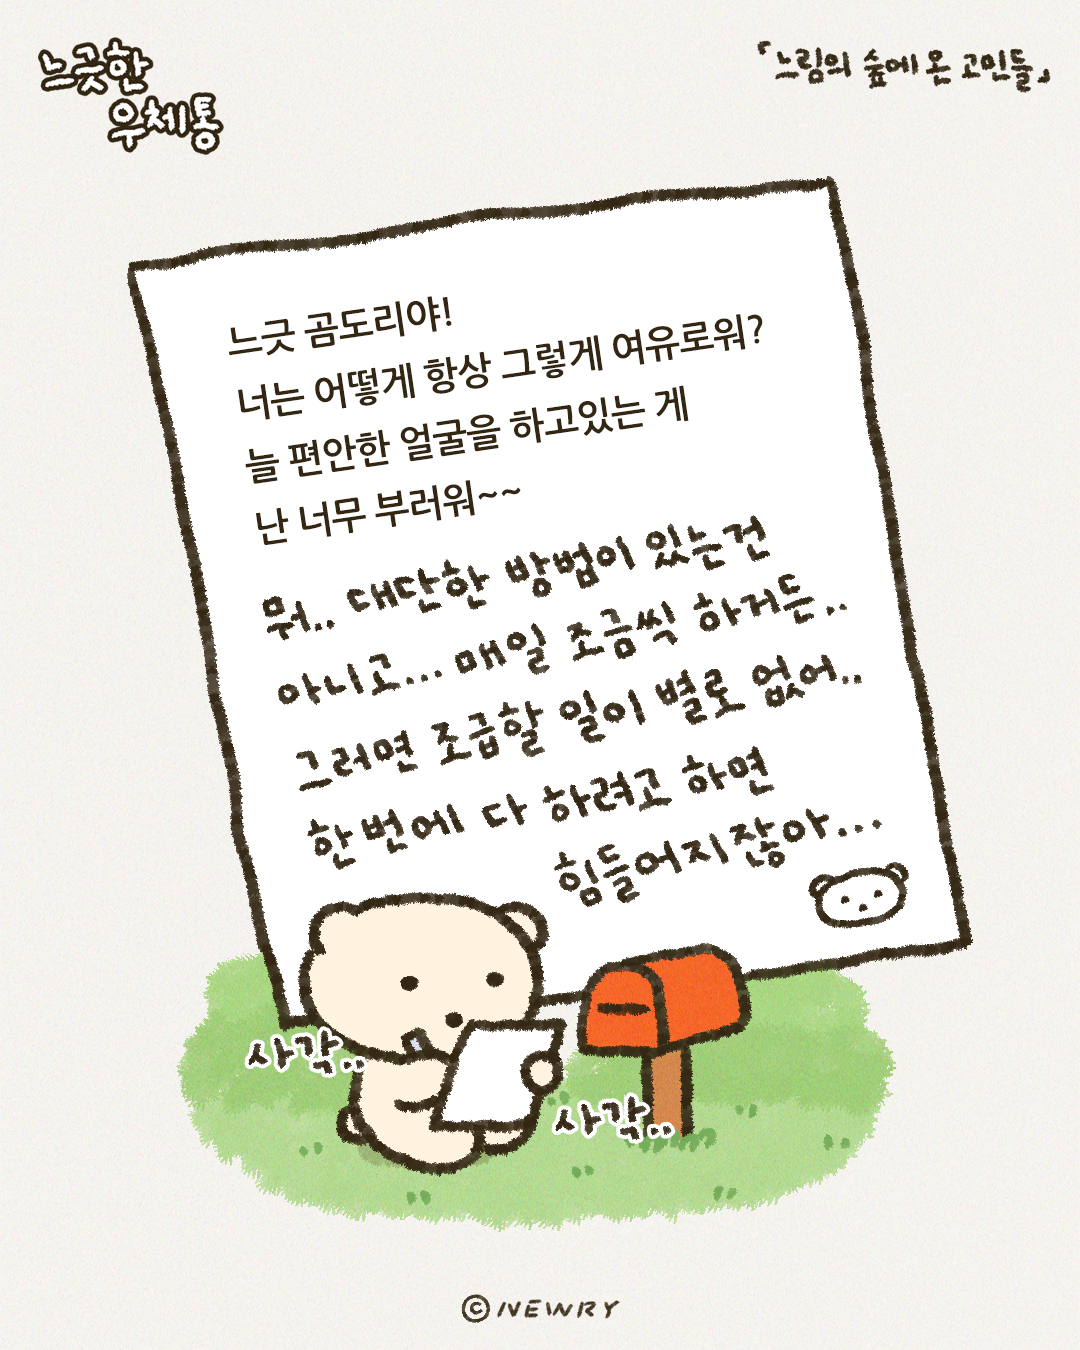 느긋한
우체통
「느림의 숲에 온 고민들」
느긋 곰도리야!
너는 어떻게 항상 그렇게 여유로워?
늘 편안한 얼굴을 하고있는 게
난 너무 부러워~~
뭐.. 대단한 방법이 있는건
아니고... 매일 조금씩 하거든..
그러면 조급할 일이 별로 없어..
한번에 다 하려고 하면
힘들어지잖아...
사각..
사각..
©NEWRY